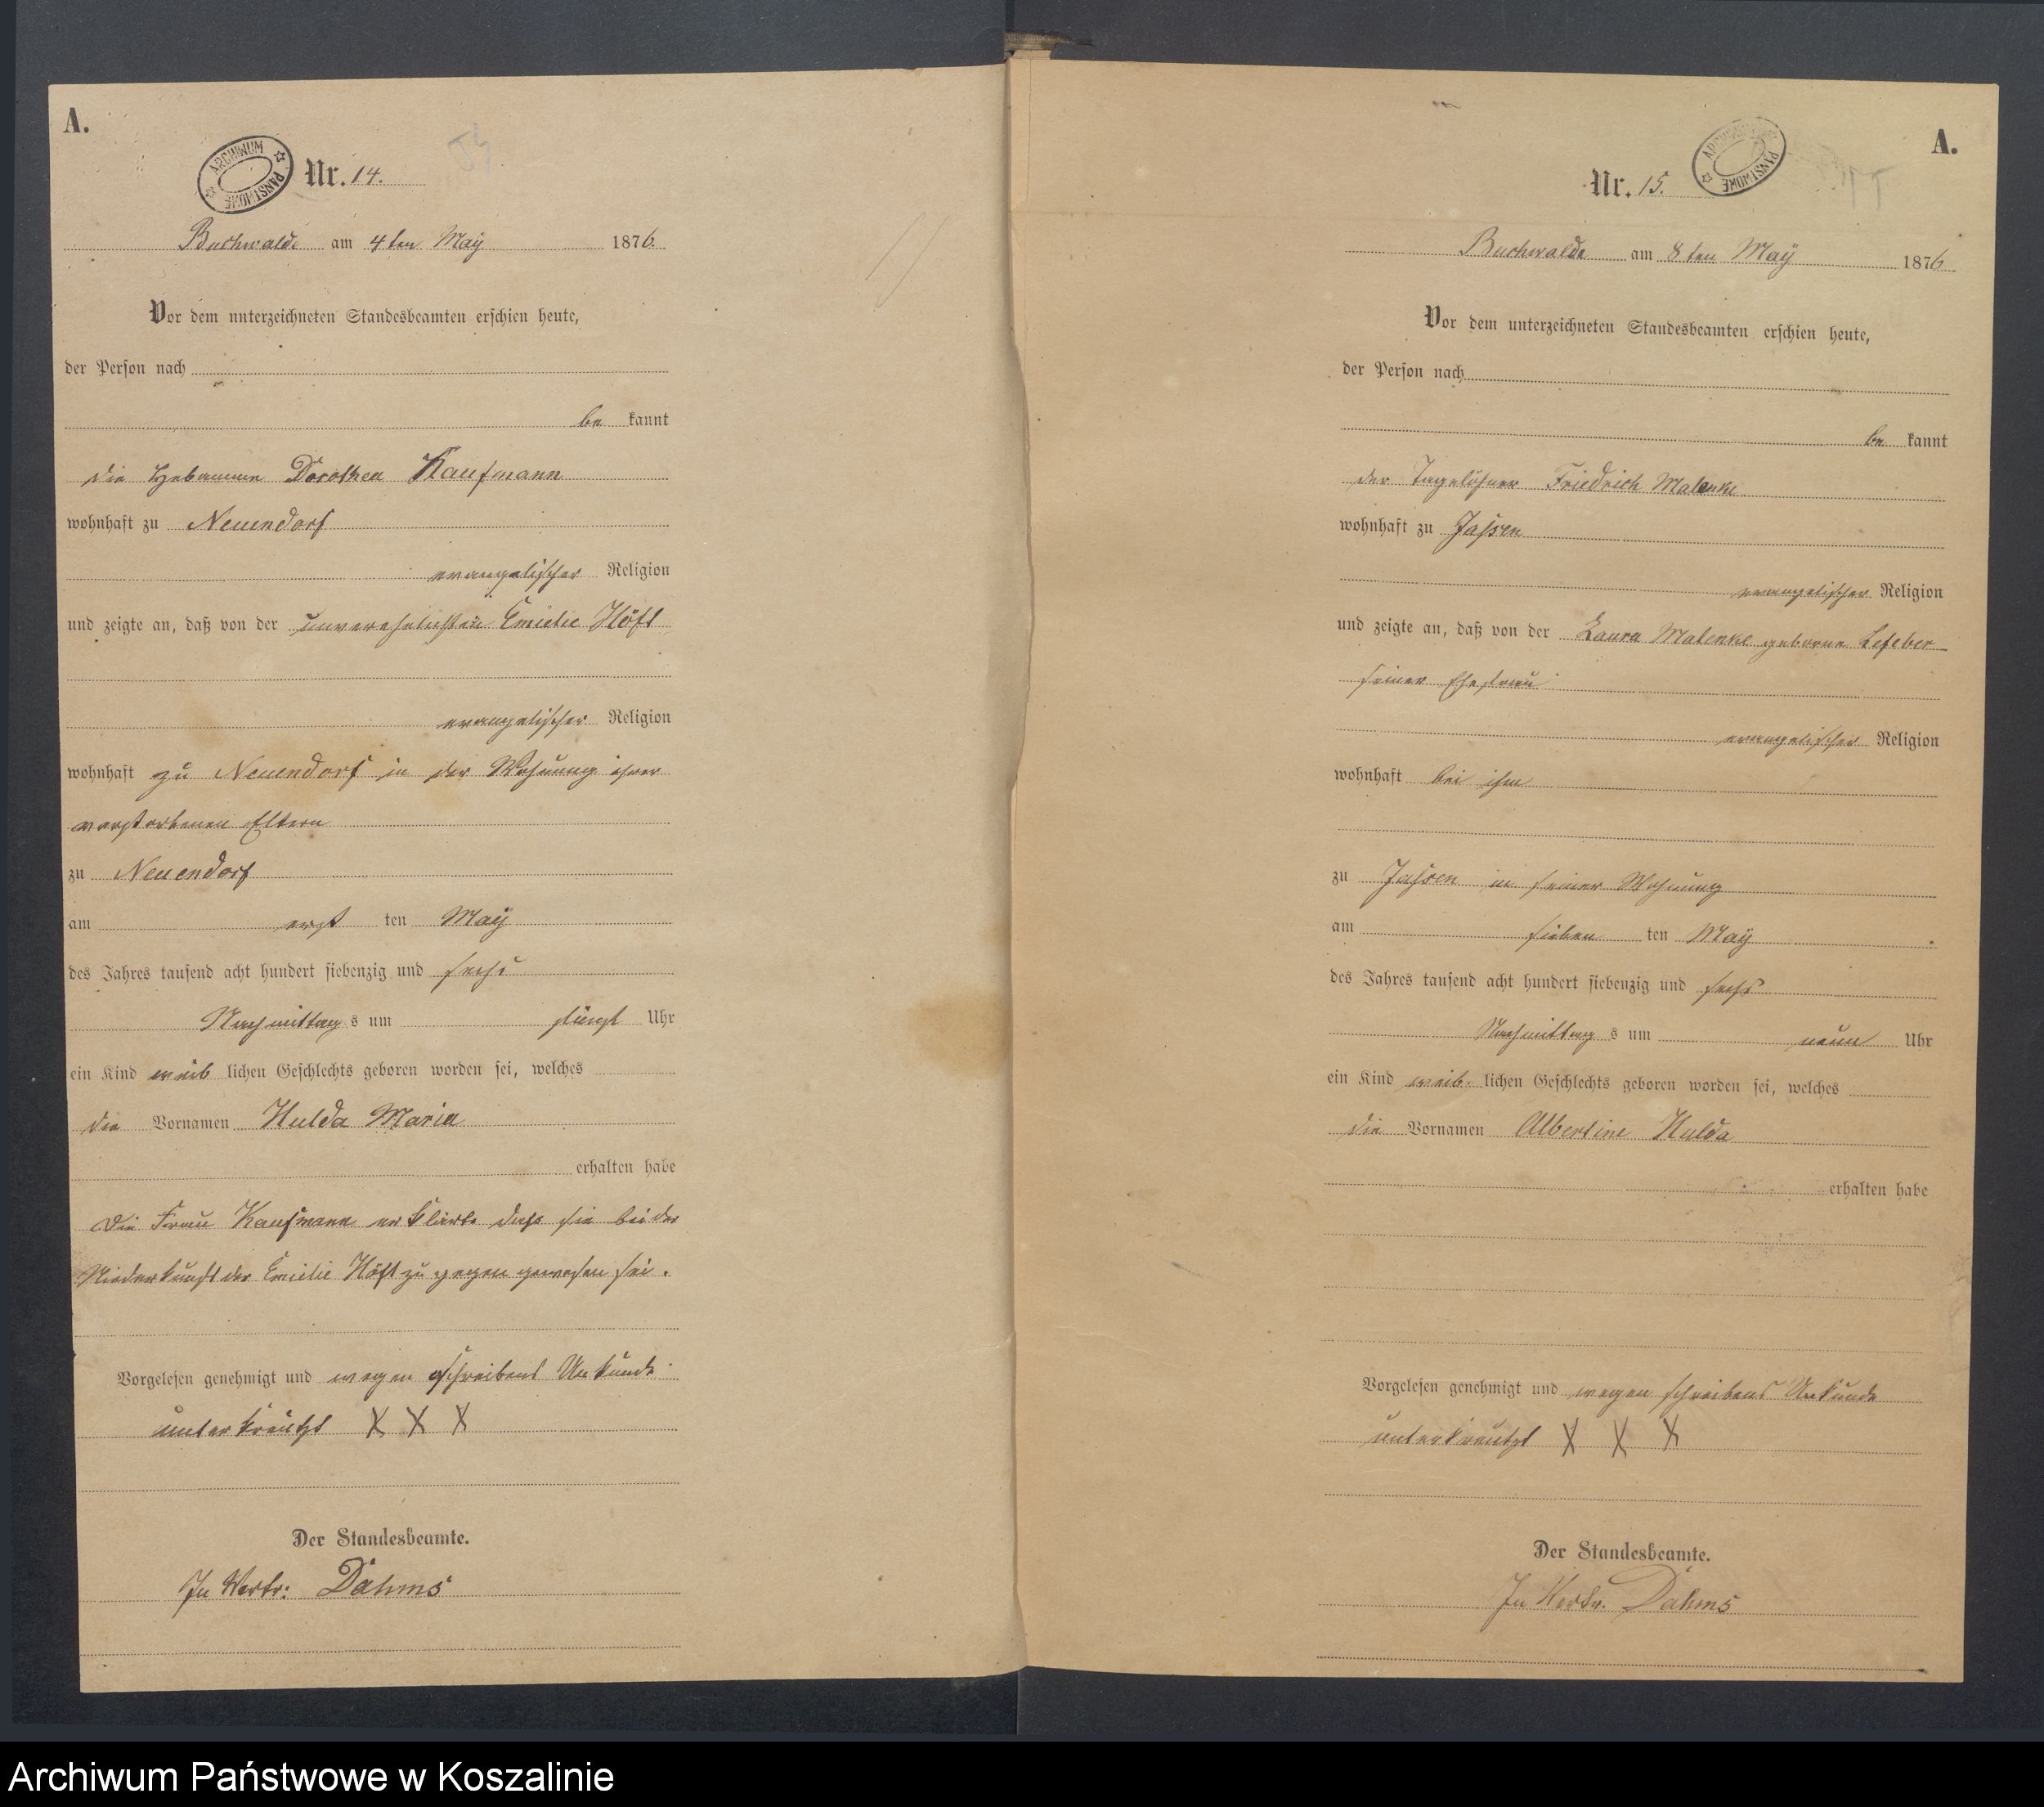 A.
ARCHIWUM PAŃSTWOWE
Nr. 14.
Buchwalde am 4ten May 1876
Vor dem unterzeichneten Standesbeamten erschien heute,
der Person nach
be kannt
die Hebamme Dorothea Kaufmann
wohnhaft zu Neuendorf
evangelischer Religion
und zeigte an, daß von der unverehelichten Emielie Höft
evangelischer Religion
wohnhaft zu Neuendorf in der Wohnung ihrer
verstorbenen Eltern
zu Neuendorf
am erst ten May
des Jahres tausend acht hundert siebenzig und sechs
Nachmittag s um Uhr
ein Kind weib lichen Geschlechts geboren worden sei, welches
die Vornamen Hulda Maria
erhalten habe
Die Frau Kaufmann erklärte dass sie bei der
Niederkunft der Emielie Höft zu gegen gewesen sei.
Vorgelesen genehmigt und wegen schreibens Unkunde
unterkreutzt X X X
Der Standesbeamte.
In Vertr: Dahms
A.
ARCHIWUM PAŃSTWOWE
Nr. 15.
Buchwalde am 8ten May 1876
Vor dem unterzeichneten Standesbeamten erschien heute,
der Person nach
be kannt
der Tagelöhner Friedrich Malenke
wohnhaft zu Jassen
evangelischer Religion
und zeigte an, daß von der Laura Malenke geborne Lefeber
seiner Ehefrau
evangelischer Religion
wohnhaft bei ihm
zu Jassen in seiner Wohnung
am sieben ten May
des Jahres tausend acht hundert siebenzig und sechs
Nachmittag s um neun Uhr
ein Kind weib lichen Geschlechts geboren worden sei, welches
die Vornamen Albertine Hulda
erhalten habe
Vorgelesen genehmigt und wegen schreibens Unkunde
unterkreutzt X X X
Der Standesbeamte.
In Vertr. Dahms
Archiwum Państwowe w Koszalinie